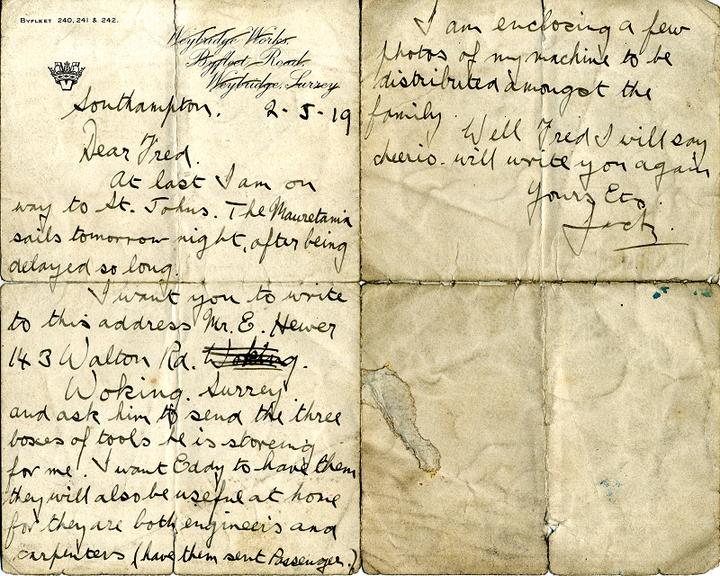 BYFLEET 240, 241 & 242.
Weybridge Works,
Byfleet Road,
Weybridge, Surrey
Southampton. 2-5-19
Dear Fred.
At last I am on
way to St. Johns. The Mauretania
sails tomorrow night, after being
delayed so long.
I want you to write
to this address Mr. E. Hewer
143 Walton Rd. Woking.
Woking. Surrey.
and ask him to send the three
boxes of tools he is storeing
for me. I want Eddy to have them
they will also be useful at home
for they are both engineers and
carpenters (have them sent Passenger.)
I am enclosing a few
photos of my machine to be
distributed amongst the
family.
Well Fred I will say
cheerio. will write you again
Yours Etc.
Jack.